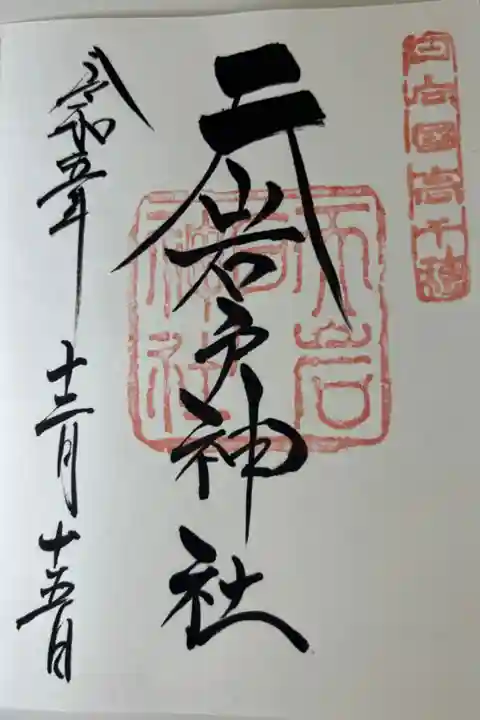 日向國高千穂
天岩戸神社
天岩戸神社
令和五年 十二月 十五日